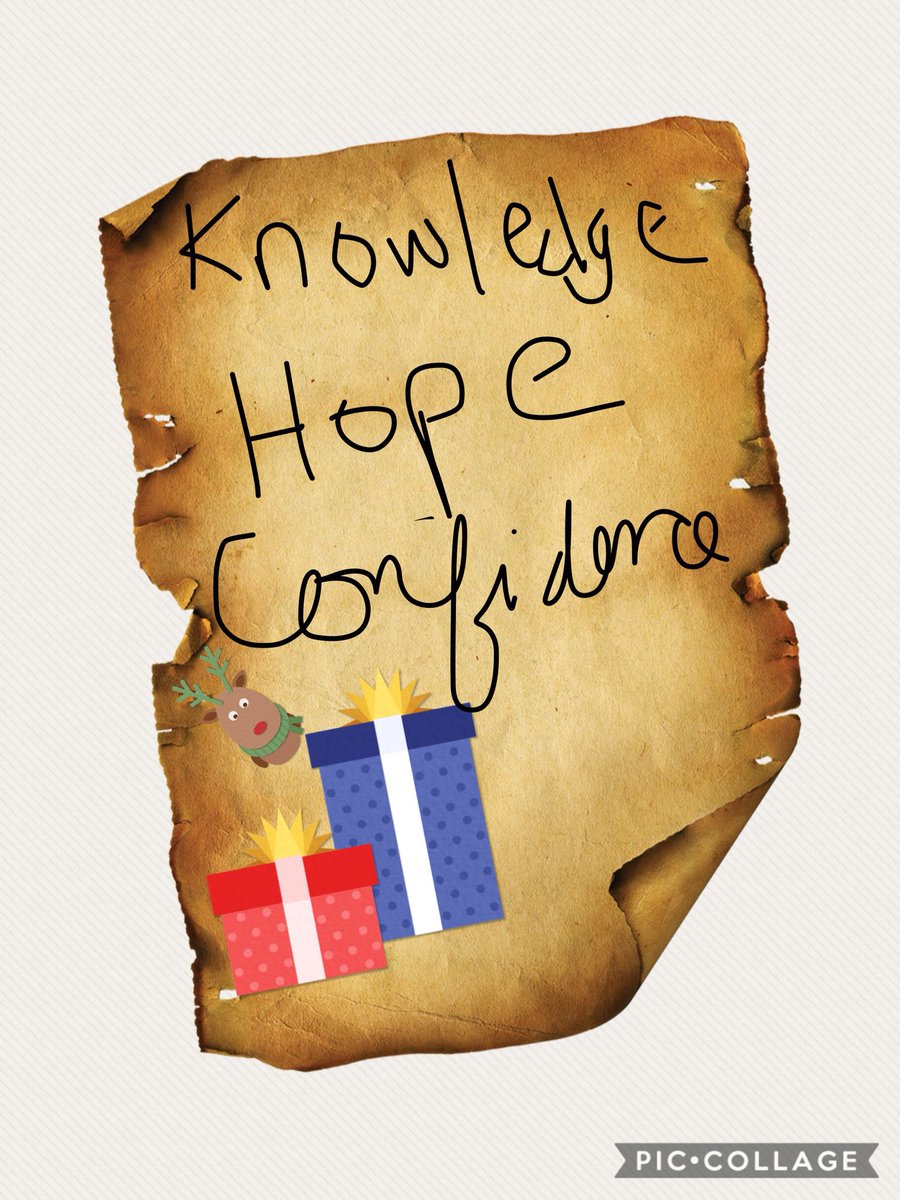 Knowledge
Hope
Confidence
PIC•COLLAGE